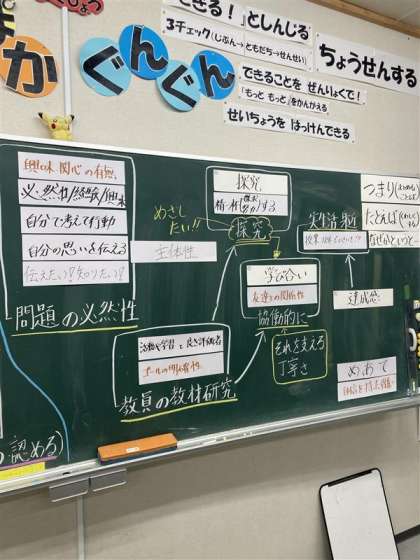 できる！」としんじる
3チェック(じぶん→ともだち→せんせい)
ちょうせんする
まか
ぐんぐん
できることを ぜんりょくで！
「もっと もっと」をかんがえる
せいちょうを はっけんできる
興味・関心の有無
自分で考えて行動
自分の思いを伝える
伝えたい！知りたい！
問題の必然性
探究
めざし
たい!!
探究
主体性
学び合い
友達との関係性
協働的に
それを支える
丁寧さ
ゴールの明確性
教員の教材研究
つまり
たとえば
なぜかというと
達成感
めあて
認める)